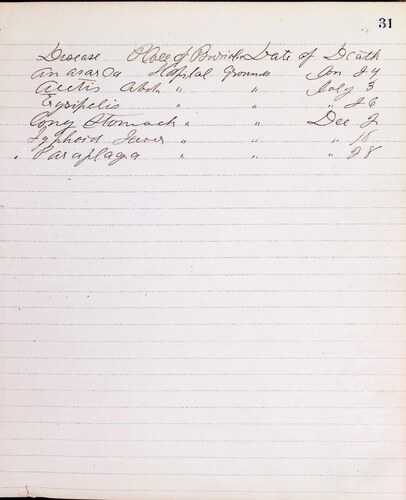 31
Disease Place of Burial Date of Death
Anasarca Hospital Grounds Jan 24
" " July 3
Erysipelis " " " 26
Stomach " " Dec 2
Typhoid Fever " " " 18
Paraplaga " " " 28